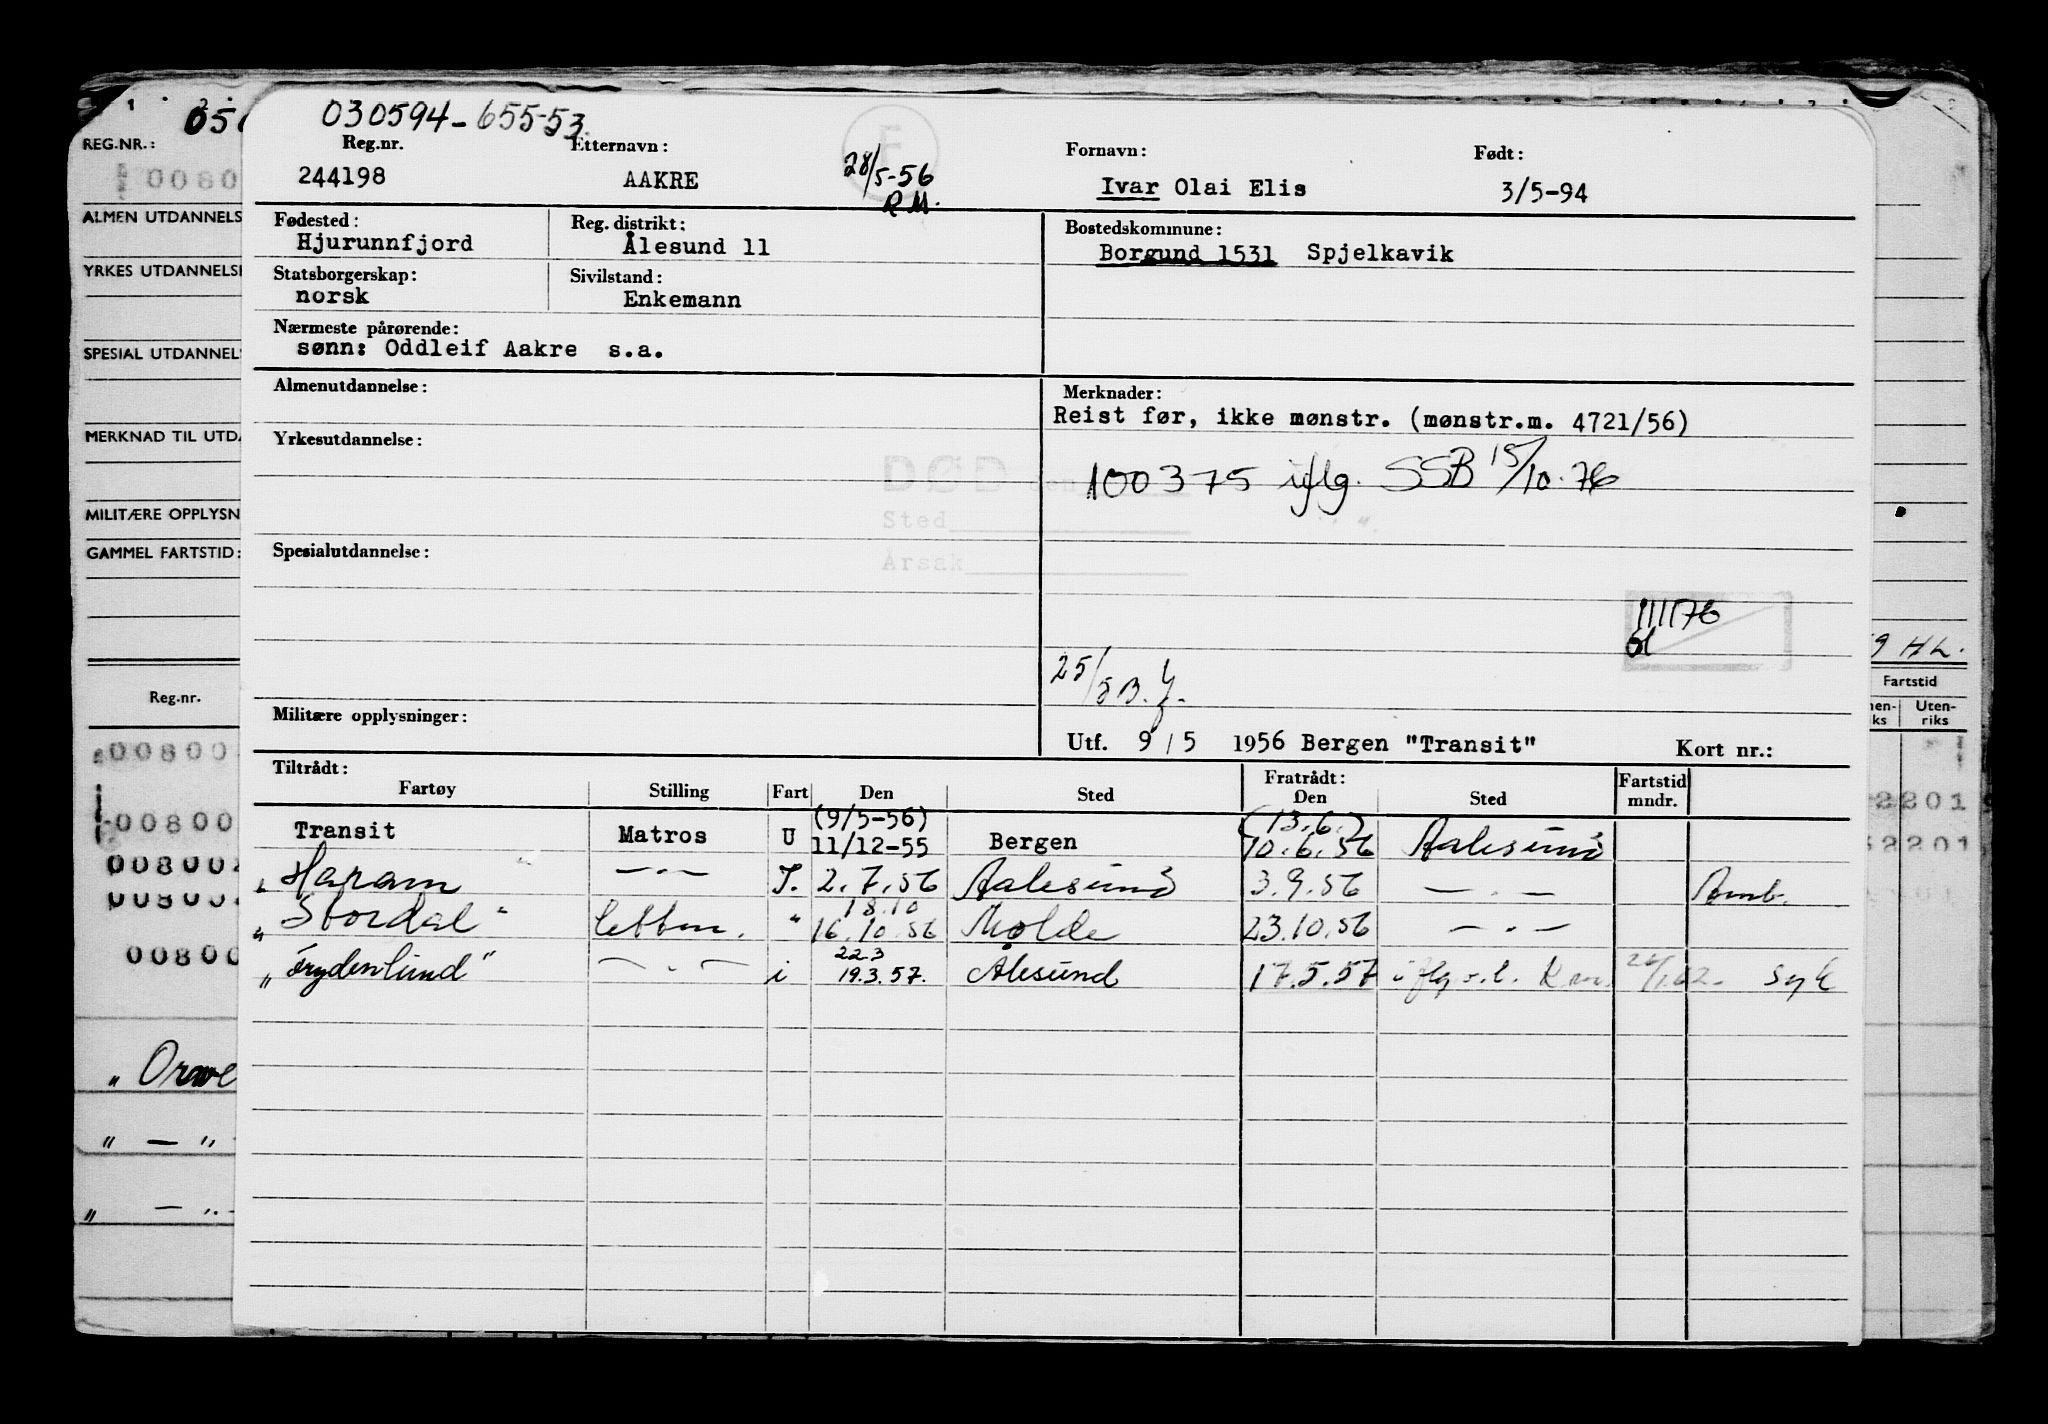 030594-655-53.
Reg.nr. Etternavn: Fornavn: Født:
244198 AAKRE 28/5-56 Ivar Olai Elis 3/5-94
R.M.
Fødested: Reg. distrikt: Bostedskommune:
Hjurunnfjord Ålesund 11 Borgund 1531 Spjelkavik
Statsborgerskap: Sivilstand:
norsk Enkemann
Nærmeste pårørende:
sønn: Oddleif Aakre s.a.
Almenutdannelse: Merknader:
Reist før, ikke mønstr. (mønstr.m. 4721/56)
Yrkesutdannelse:
DØD den
100375 iflg. SSB 15/10-76
Sted
Spesialutdannelse:
Årsak
111176
25/5
Militære opplysninger:
Utf. 9/5 1956 Bergen "Transit" Kort nr.:
Tiltrådt: Fratrådt: Fartstid
Fartøy Stilling Fart Den Sted Den Sted mndr.
(9/5-56) (13.6.)
Transit Matros U 11/12-55 Bergen 10.6.56 Aalesund
Haram —.— I. 2.7.56 Aalesund 3.9.56 —.—
18.10
"Stordal" lettm. " 16.10.56 Molde 23.10.56 —.—
22.3
"Frydenlund" —.— i 19.3.57. Ålesund 17.5.57 syk
REG.NR.:
ALMEN UTDANNELS
YRKES UTDANNELSE
SPESIAL UTDANNEL
MERKNAD TIL UTDA
MILITÆRE OPPLYSN
GAMMEL FARTSTID:
Reg.nr.
00800
00800
00800
00800
00800
9 HL.
Fartstid
Uten-
riks
2201
2201